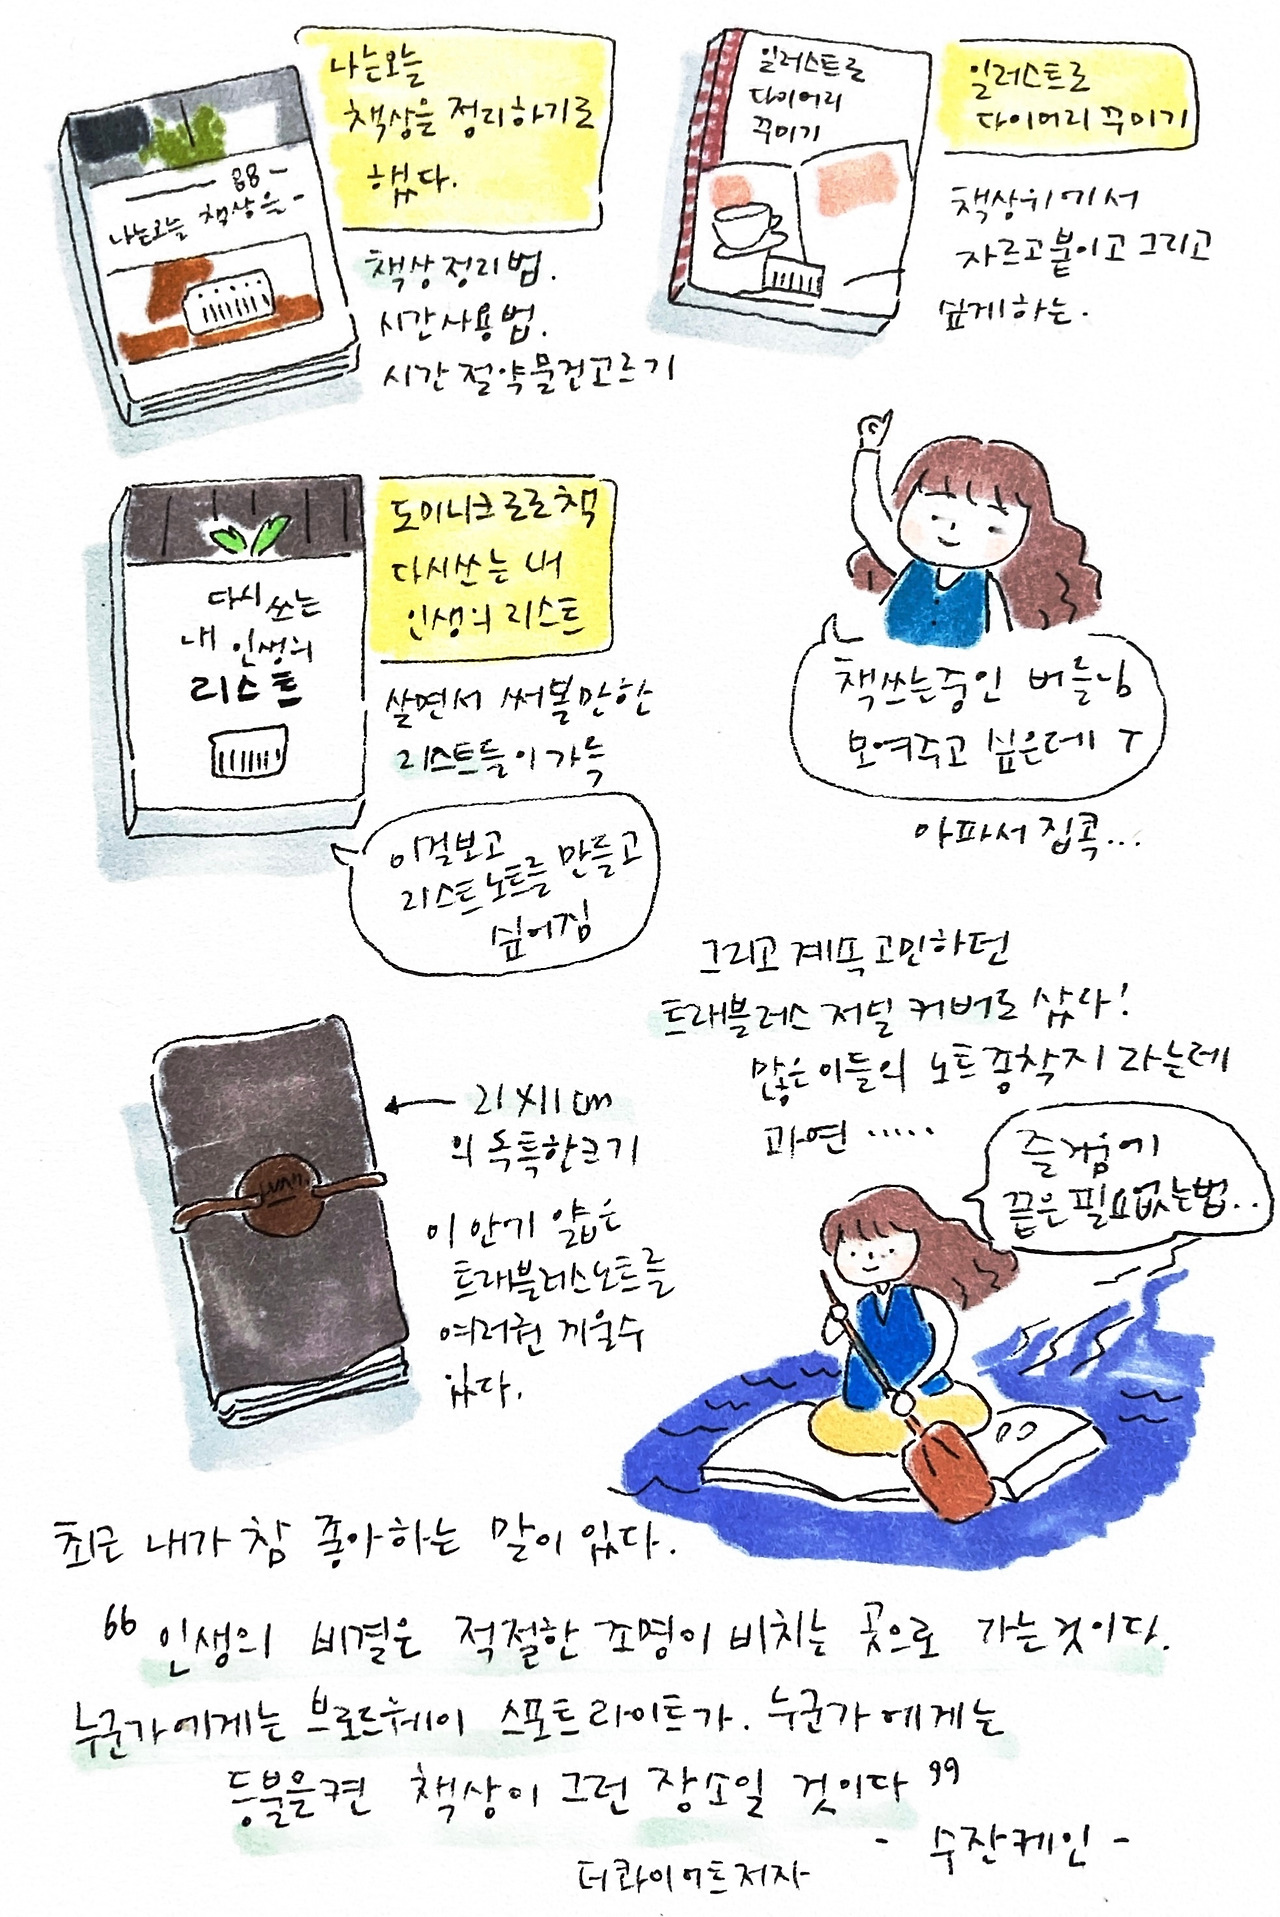 나는오늘
책상을 정리하기로
했다.
88
나는오늘 책상을
책상정리법.
시간사용법.
시간 절약물건고르기
일러스트로
다이어리
꾸미기
일러스트로
다이어리 꾸미기
책상위에서
자르고붙이고 그리고
싶게하는.
도미니크로로책
다시쓰는 내
인생의 리스트
다시쓰는
내 인생의
리스트
살면서 써볼만한
리스트들이 가득
이걸보고
리스트노트를 만들고
싶어짐
책쓰는중인 버들님
보여주고 싶은데 T
아파서 집콕...
그리고 계속고민하던
트래블러스 저널 커버로 샀다!
많은이들의 노트종착지 라는데
과연 .....
21X11 cm
의 독특한크기
이 안에 얇은
트래블러스노트를
여러권 끼울수
있다.
즐거움에
끝은필요없는법..
최근 내가 참 좋아하는 말이 있다.
“ 인생의 비결은 적절한 조명이 비치는 곳으로 가는것이다.
누군가에게는 브로드웨이 스포트라이트가. 누군가에게는
등불을켠 책상이 그런 장소일 것이다 ”
- 수잔케인 -
더콰이어트저자